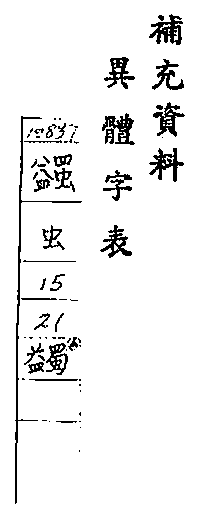 補充資料
異體字表
10837
虫
15
21
蠲